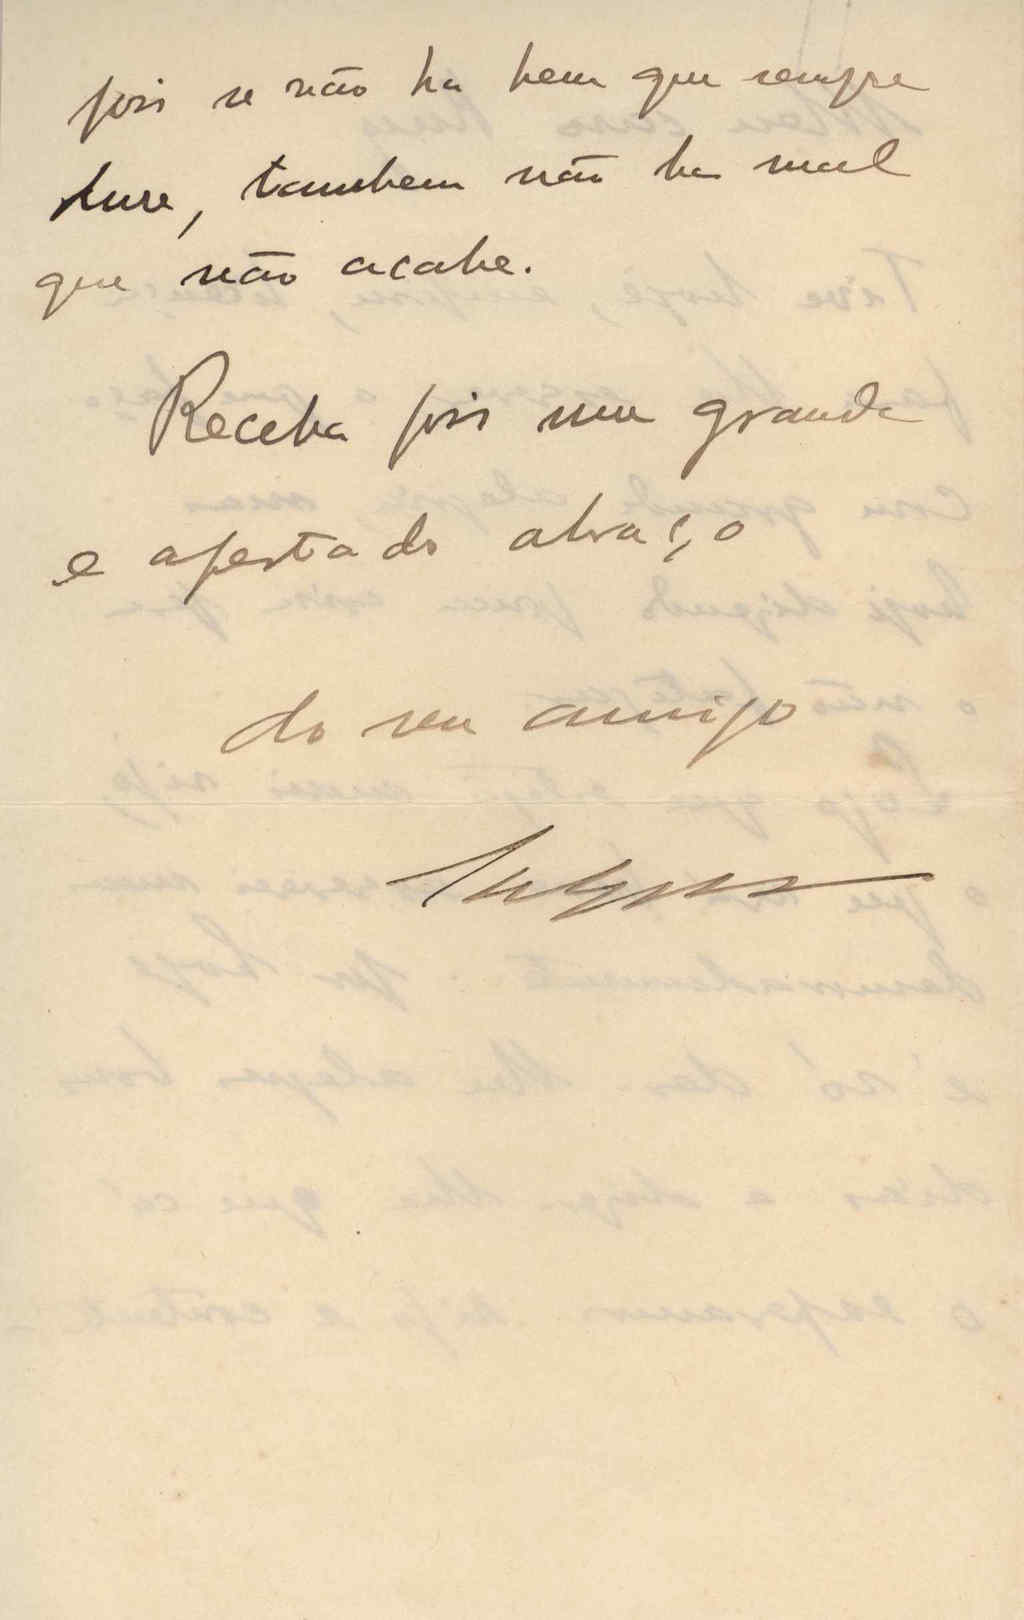 pois se não ha bem que sempre
dure, tambem não ha mal
que não acabe.
Receba pois um grande
e apertado abraço
do seu amigo